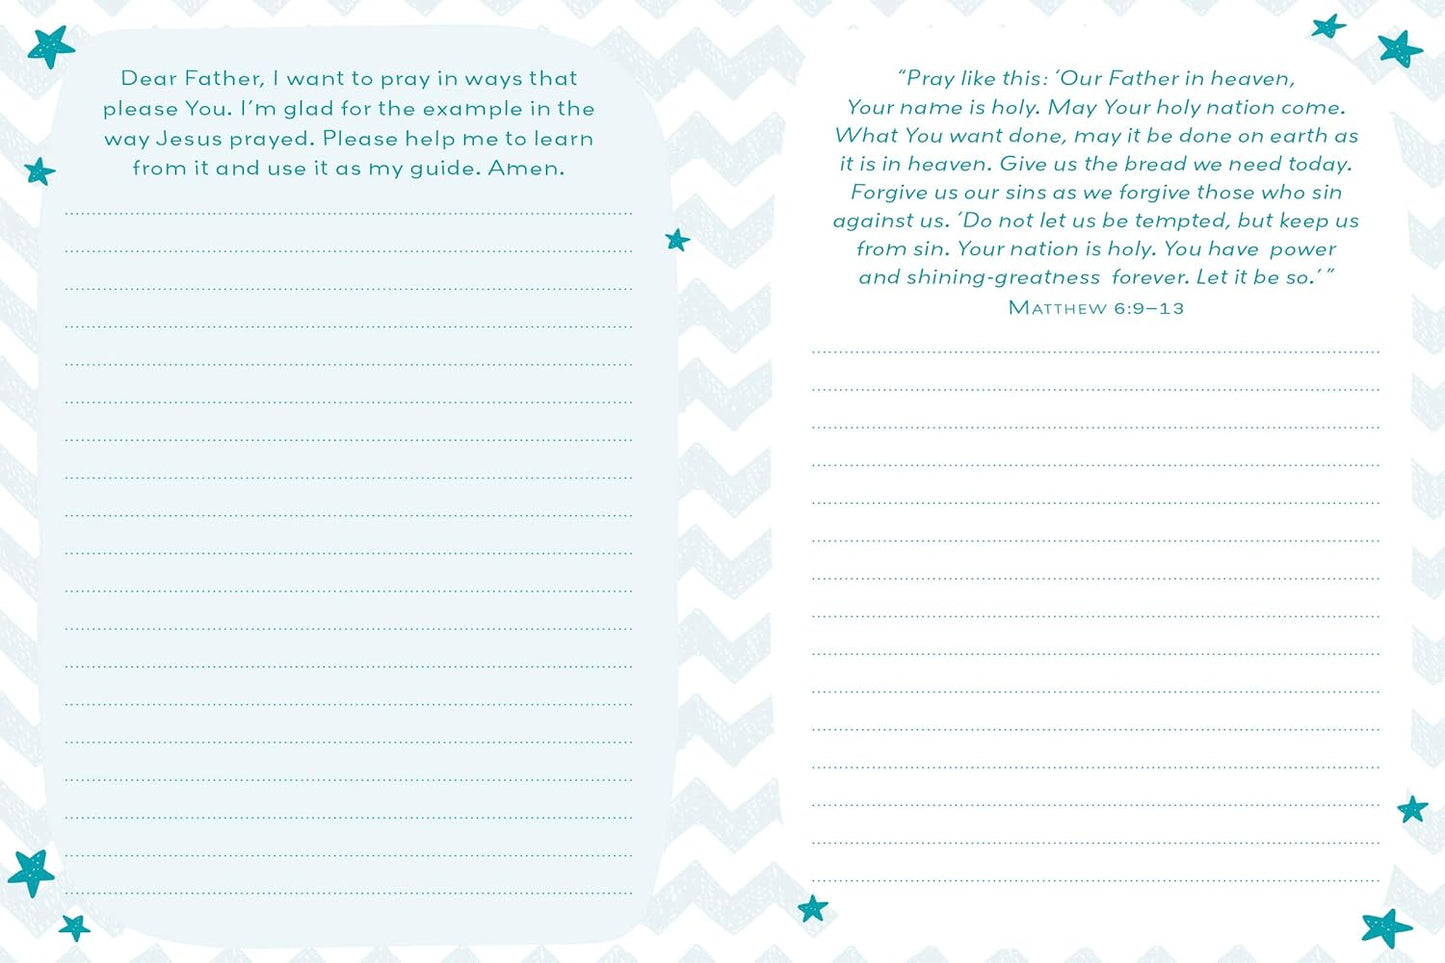 Dear Father, I want to pray in ways that
please You. I'm glad for the example in the
way Jesus prayed. Please help me to learn
from it and use it as my guide. Amen.
“Pray like this: ‘Our Father in heaven,
Your name is holy. May Your holy nation come.
What You want done, may it be done on earth as
it is in heaven. Give us the bread we need today.
Forgive us our sins as we forgive those who sin
against us. ‘Do not let us be tempted, but keep us
from sin. Your nation is holy. You have power
and shining-greatness forever. Let it be so.’”
MATTHEW 6:9–13